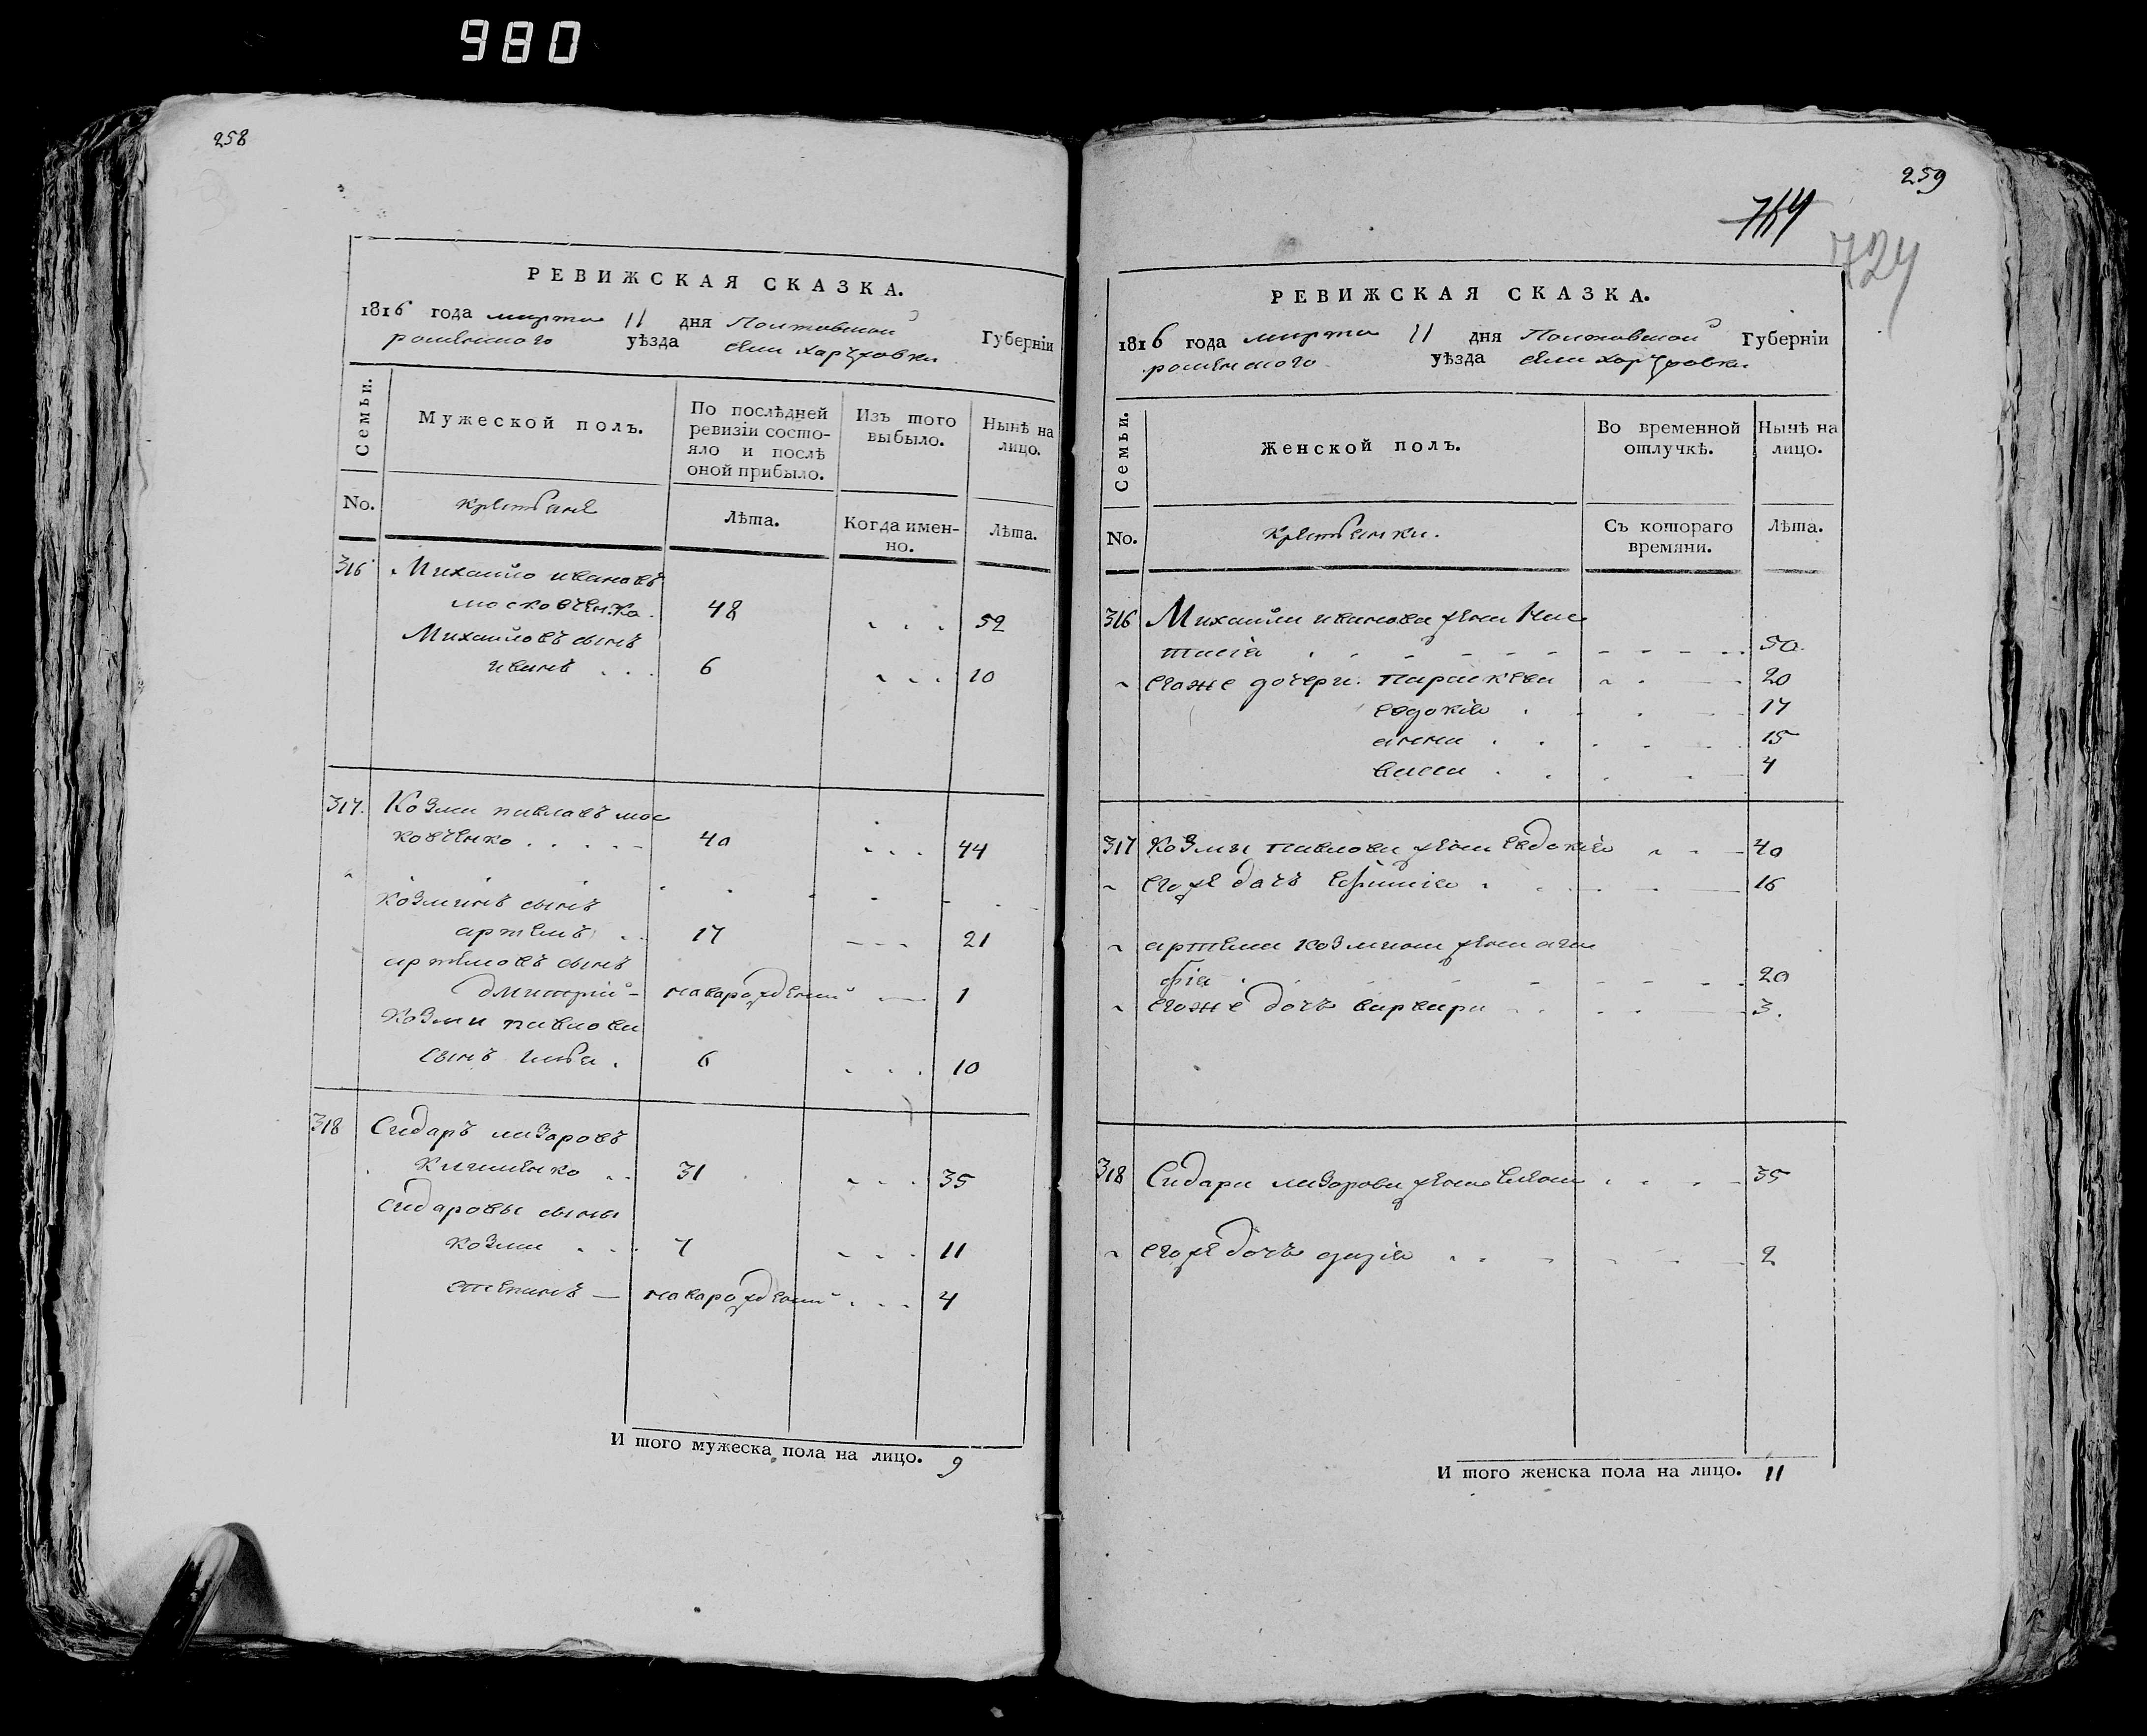 980
258
РЕВИЖСКАЯ СКАЗКА.
1816 года марта 11 дня Полтавской Губерніи
роменского уѣзда села
Семьи.
Мужеской полъ.
По послѣдней
ревизіи состо-
яло и послѣ
оной прибыло.
Изъ того
выбыло.
Нынѣ на
лицо.
No.
крестьяне
Лѣта.
Когда имен-
но.
Лѣта.
316 Михайло ивановъ
московченко 48 52
Михайловъ сынъ
иванъ 6 10
317. Козма павловъ мос
ковченко 40 44
козминъ сынъ
артемъ 17 21
артемовъ сынъ
дмитрій новорожденый 1
Козмы павлова
сынъ 6 10
318 Сидаръ лазаровъ
31 35
сидаровы сыны
козма 7 11
степанъ — новорожденый 4
И того мужеска пола на лицо. 9
259
764
724
РЕВИЖСКАЯ СКАЗКА.
1816 года марта 11 дня Полтавской Губерніи
роменского уѣзда села
Семьи.
Женской полъ.
Во временной
отлучкѣ.
Нынѣ на
лицо.
No.
крестьянки.
Съ котораго
времяни.
Лѣта.
316 Михайла иванова жена Нас
тасія 50
егоже дочери параскева 20
евдокія 17
анна 15
васса 4
317 козмы павлова жена евдокія 40
егоже дочь 16
артема козмина жена ага
фія 20
егоже дочь варвара 3.
318 Сидара лазарова жена 35
егоже дочь 2
И того женска пола на лицо. 11